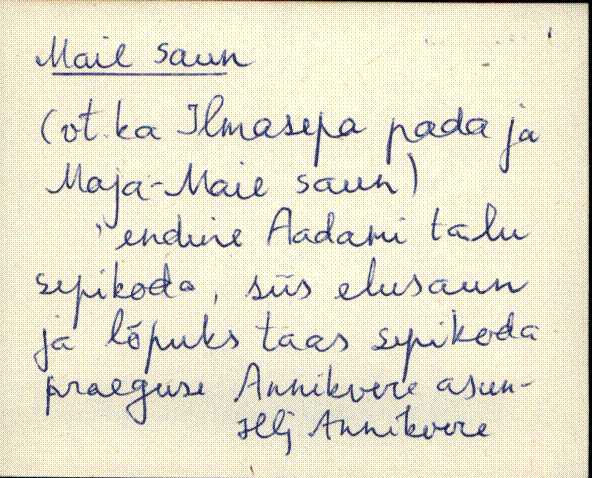 Maie saun
(vt. ka Ilmasepa pada ja
Maja-Maie saun)
' endine Aadami talu
sepikoda, siis elusaun
ja lõpuks taas sepikoda
praeguse Annikvere asun-
Hlj Annikvere